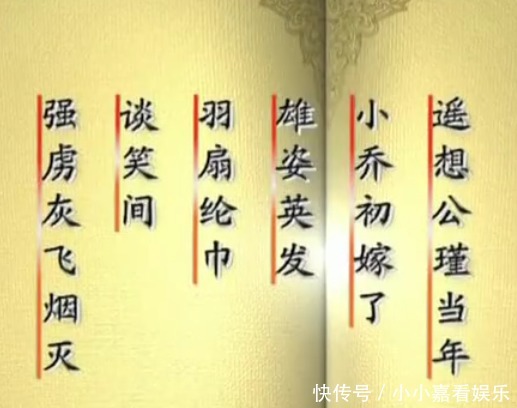 遥想公瑾当年
小乔初嫁了
雄姿英发
羽扇纶巾
谈笑间
强虏灰飞烟灭
快传号/小小嘉看娱乐